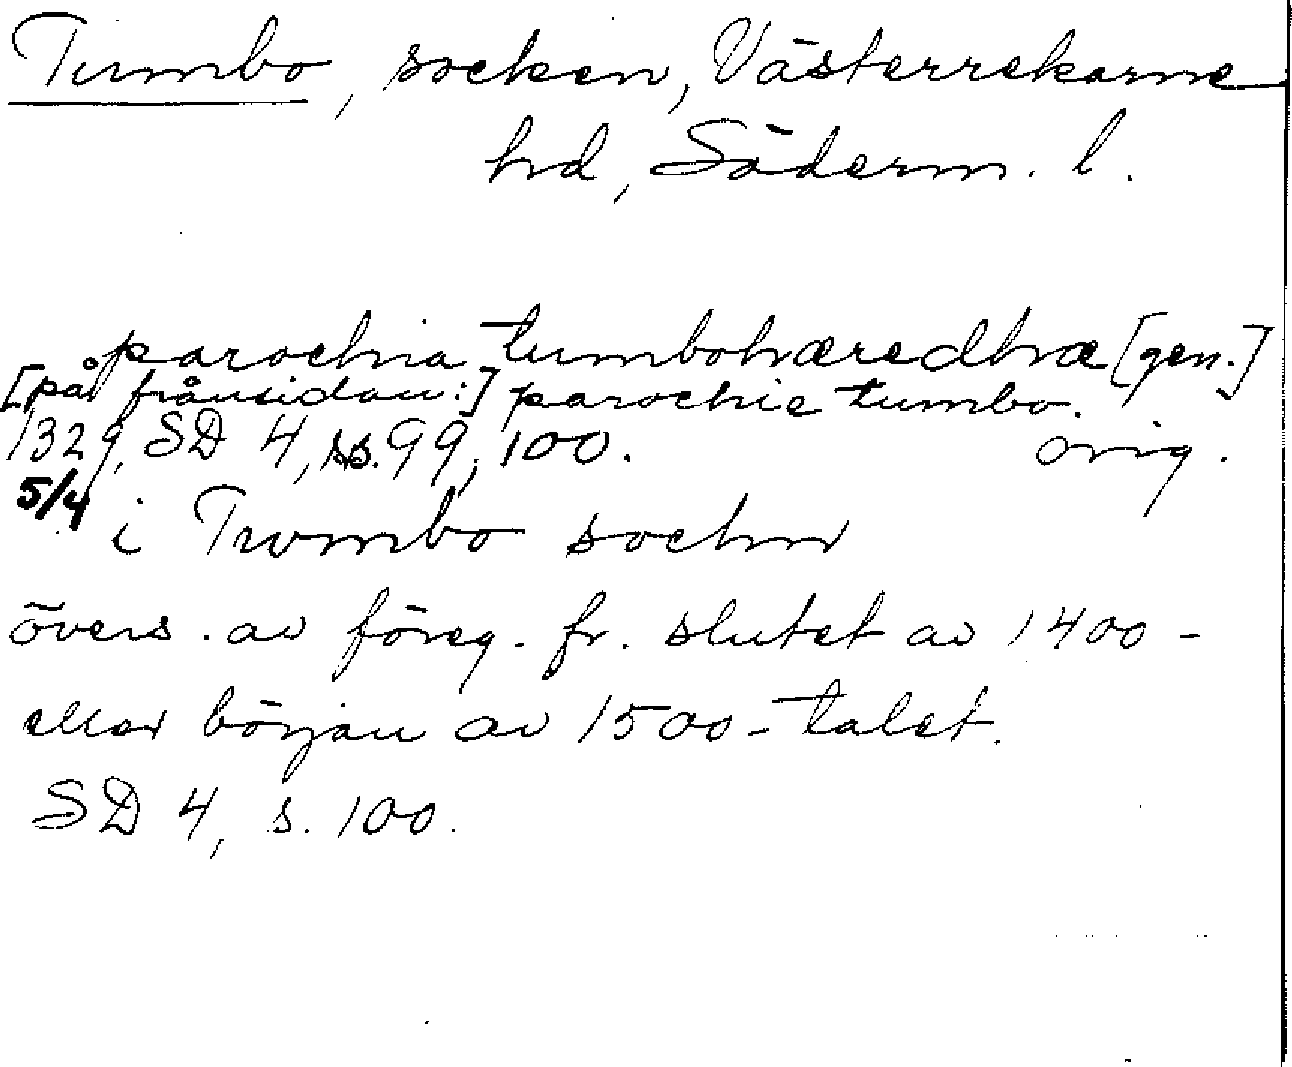 Tumbo, socken, Västerrekarne
hd, Söderm. l.
parochia tumbohæredhæ [gen.]
[på frånsidan:] parochie tumbo.
1329, SD 4, ss. 99, 100. orig.
5/4
i Trombo sochn
övers. av föreg. fr. slutet av 1400-
eller början av 1500-talet.
SD 4, s. 100.